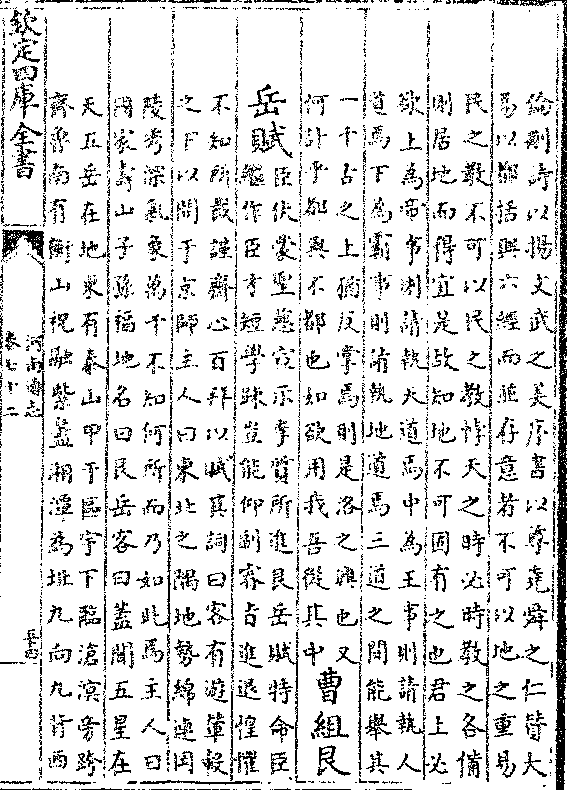 倫刪詩以揚文武之美序書以尊堯舜之仁皆大
易以鄒括與六經而並存意若不可以地之重易
民之教不可以民之教悖天之時必時教之各備
則居地而得宜是故知地不可固有之也君上必
欲上為帝事則請執天道焉中為王事則請執人
道焉下為霸事則請執地道焉三道之間能舉其
一千古之上猶反掌焉則是洛之興也又
何計乎都與不都也如欲用我吾從其中
曹組艮
岳賦
臣伏蒙聖慈宣示李質所進艮岳賦特命臣
繼作臣才短學踈豈能仰副睿旨進退惶懼
不知所裁謹齋心百拜以賦其詞曰客有游輦轂
之下以問于京師主人曰東北之隅地勢綿連岡
陵秀深氣象萬千不知何所而乃如此焉主人曰
國家壽山子孫福地名曰艮岳客曰蓋聞五星在
天五岳在地東有泰山甲于區宇下臨滄溟旁跨
齊魯南有衡山祝融紫蓋湘潭為址九向九背西
欽定四庫全書
河南通志
卷七十二